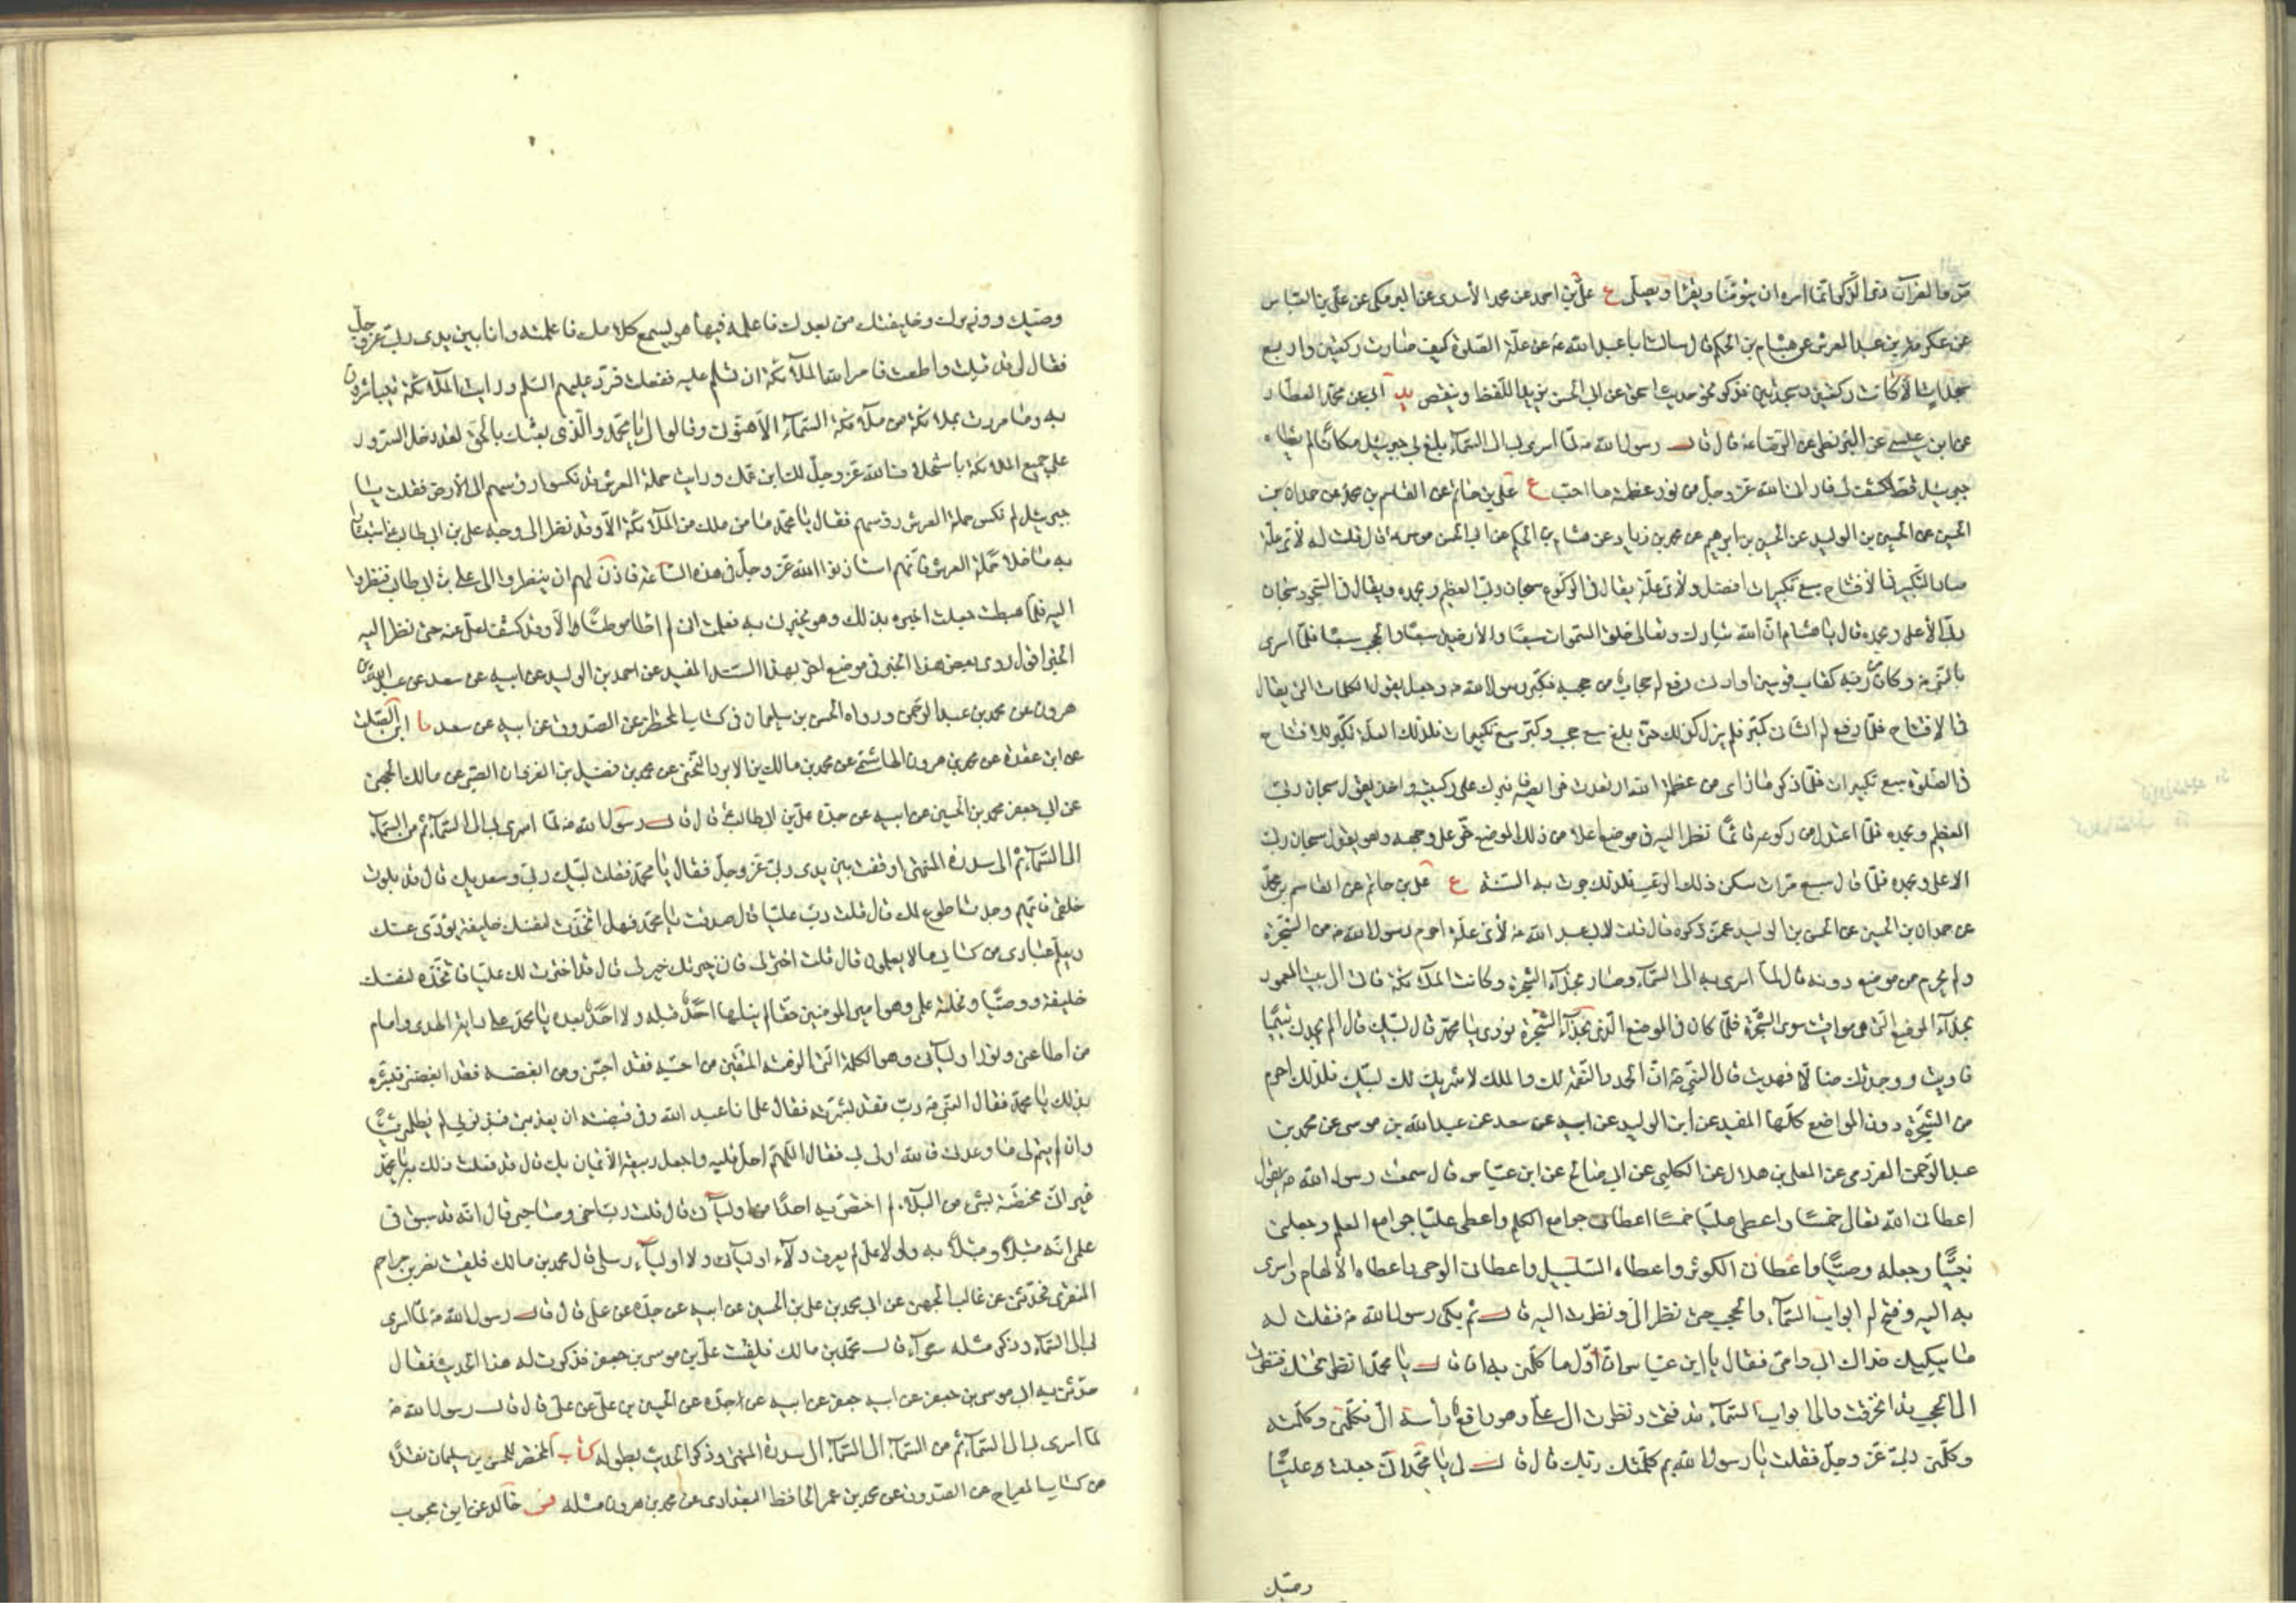 من القرآن انما امره ان يتوضأ ويقرأ ويصلى ع على بن احمد عن محمد الأسدى عن البرمكى عن على بن العباس
عن عكرمة بن عبد العرش عن هشام بن الحكم قال سالت ابا عبد الله ع عن علة الصلوة كيف صارت ركعتين واربع
سجدات الا كانت ركعتين وسجدتين فذكر نحو حديث اسحق عن ابى الحسن ع يزيد اللفظ وينقص يد ابى عن محمد العطار
عن ابن عيسى عن البزنطى عن الرضا ع قال قال رسول الله ص لما اسرى بى الى السماء بلغ بى جبرئيل مكانا لم يطأه
جبرئيل قط فكشف لى فارانى الله عز وجل من نور عظمته ما احب ع على بن حاتم عن القاسم بن محمد عن حمدان بن
الحسين عن الحسين بن الوليد عن الحسين بن ابرهيم عن محمد بن زياد عن هشام بن الحكم عن ابى الحسن موسى ع قال قلت له لأى علة
صار التكبير فى الأفتتاح سبع تكبيرات افضل ولأى علة يقال فى الركوع سبحان ربى العظيم وبحمده ويقال فى السجود سبحان
ربى الأعلى وبحمده قال يا هشام ان الله تبارك وتعالى خلق السموات سبعا والأرضين سبعا والحجب سبعا فلما اسرى
بالنبى ص وكان من ربه كقاب قوسين او ادنى رفع له حجاب من حجبه فكبر رسول الله ص وجعل يقول الكلمات التى يقال
فى الافتتاح فلما رفع له الثانى كبر فلم يزل كذلك حتى بلغ سبع حجب وكبر سبع تكبيرات فلذلك العلة تكبر للافتتاح
فى الصلوة سبع تكبيرات فلما ذكر ما رأى من عظمة الله ارتعدت فرائصه فبرك على ركبتيه واخذ يقول سبحان ربى
العظيم وبحمده فلما اعتدل من ركوعه قائما نظر اليه فى موضع اعلا من ذلك الموضع خر على وجهه وهو يقول سبحان ربى
الاعلى وبحمده فلما قال سبع مرات سكن ذلك الرعب فلذلك جرت به السنة ع على بن حاتم عن القاسم بن محمد
عن حمدان بن الحسين عن الحسن بن الوليد عمن ذكره قال قلت لابى عبد الله ع لأى علة احرم رسول الله ص من الشجرة
ولم يحرم من موضع دونه قال لما اسرى به الى السماء وصار بحذاء الشجرة وكانت الملائكة تاتى الى البيت المعمور
بحذاء المواضع التى هى مواقيت سوى الشجرة فلما كان فى الموضع الذى بحذاء الشجرة نودى يا محمد قال لبيك قال الم يجدك يتيما
فاويت ووجدتك ضالا فهديت قال النبى ص ان الحمد والنعمة لك والملك لا شريك لك لبيك فلذلك احرم
من الشجرة دون المواضع كلها المفيد عن ابن الوليد عن ابيه عن سعد عن عبد الله بن موسى عن محمد بن
عبد الرحمن العرزمى عن المعلى بن هلال عن الكلبى عن ابى صالح عن ابن عباس قال سمعت رسول الله ص يقول
اعطانى الله تعالى خمسا واعطى عليا خمسا اعطانى جوامع الكلم واعطى عليا جوامع العلم وجعلنى
نبيا وجعله وصيا واعطانى الكوثر واعطاه السلسبيل واعطانى الوحى واعطاه الألهام واسرى
به اليه وفتح لم ابواب السماء والحجب حتى نظر الى ونظرت اليه قال ثم بكى رسول الله ص فقلت له
ما يبكيك فداك ابى وامى فقال يا ابن عباس ان اول ما كلمنى به ان قال يا محمد انظر تحتك فنظرت
الى الحجب قد انخرقت والى ابواب السماء قد فتحت ونظرت الى على وهو رافع رأسه الى فكلمنى وكلمته
وكلمنى ربى عز وجل فقلت يا رسول الله بم كلمك ربك قال قال لى يا محمد انى جعلت عليا
وصيك
وصيك ووزيرك وخليفتك من بعدك فاعلمه فها هو يسمع كلامك فاعلمته وانا بين يدى ربى عز وجل
فقال لى قد قبلت واطعت فامر الله الملائكة ان تسلم عليه ففعلت فرد عليهم السلم ورايت الملائكة يتباشرون
به وما مررت بملائكة من ملائكة السماء الا هنؤنى وقالوا لى يا محمد والذى بعثك بالحق لقد دخل السرور
على جميع الملائكة باستخلاف الله عز وجل لك ابن عمك ورايت حملة العرش قد نكسوا رؤسهم الى الأرض فقلت يا
جبرئيل لم نكس حملة العرش رؤسهم فقال يا محمد ما من ملك من الملائكة الا وقد نظر الى وجه على بن ابى طالب استبشارا
به ما خلا حملة العرش فانهم استاذنوا الله عز وجل فى هذه الساعة فاذن لهم ان ينظروا الى على بن ابى طالب فنظروا
اليه فلما هبطت جعلت اخبره بذلك وهو يخبرنى به فعلمت انى لم اطأ موطئا الا وقد كشف لعلى عنه حتى نظر اليه
الخبر اقول روى بعض هذا الخبر فى موضع اخر بهذا السند المفيد عن احمد بن الوليد عن ابيه عن سعد عن عبد الله بن
هرون عن محمد بن عبد الرحمن ورواه الحسن بن سليمان فى كتاب المحتضر عن الصدوق عن ابيه عن سعد ما ابن الصلت
عن ابن عقدة عن محمد بن هرون الهاشمى عن محمد بن مالك بن الابرد النخعى عن محمد بن فضيل بن غزوان الضبى عن مالك الجهنى
عن ابى جعفر محمد بن الحسين عن ابيه عن جده على بن ابى طالب ع قال قال رسول الله ص لما اسرى بى الى السماء ثم من السماء
الى السماء ثم الى سدرة المنتهى اوقفت بين يدى ربى عز وجل فقال يا محمد فقلت لبيك ربى وسعديك قال قد بلوت
خلقى فايهم وجدت اطوع لك قال قلت رب عليا قال صدقت يا محمد فهل اتخذت لنفسك خليفة يؤدى عنك
ويعلم عبادى من كتابى ما لا يعلمون قال قلت اختر لى فان خيرتك خير لى قال قد اخترت لك عليا فاتخذه لنفسك
خليفة ووصيا ونحلته علمى وهو امير المؤمنين حقا لم ينلها احد قبله ولا احد بعده يا محمد على راية الهدى وامام
من اطاعنى ونور اوليائى وهو الكلمة التى الزمتها المتقين من احبه فقد احبنى ومن ابغضه فقد ابغضنى فبشره
بذلك يا محمد فقال النبى ص رب فقد بشرته فقال على انا عبد الله وفى قبضته ان يعذبنى فبذنوبى لم يظلمنى شيئا
وان يتم لى ما وعدنى فالله اولى بى فقال اللهم اجل قلبه واجعل ربيعه الأيمان بك قال قد فعلت ذلك به يا محمد
غير انى مختصه بشئ من البلاء لم اختص به احدا من اوليائى قال قلت رب اخى وصاحبى قال انه قد سبق فى
علمى انه مبتلا ومبتلا به ولولا على لم يعرف ولاء اوليائى ولا اولياء رسلى قال محمد بن مالك فلقيت نصر بن مزاحم
المنقرى فحدثنى عن غالب الجهنى عن ابى محمد بن على بن الحسين عن ابيه عن جده عن على قال قال رسول الله ص لما اسرى
بى الى السماء وذكر مثله سواء قال محمد بن مالك فلقيت على بن موسى بن جعفر فذكرت له هذا الحديث فقال
حدثنى به ابى موسى بن جعفر عن ابيه جعفر عن ابيه عن جده عن الحسين بن على عن على قال قال رسول الله ص
لما اسرى بى الى السماء ثم من السماء الى السماء الى سدرة المنتهى وذكر الحديث بطوله كتاب المحتضر للحسن بن سليمان نقلا
من كتاب المعراج عن الصدوق عن محمد بن عمر الحافظ البغدادى عن محمد بن هرون مثله فس خالد عن ابن محبوب